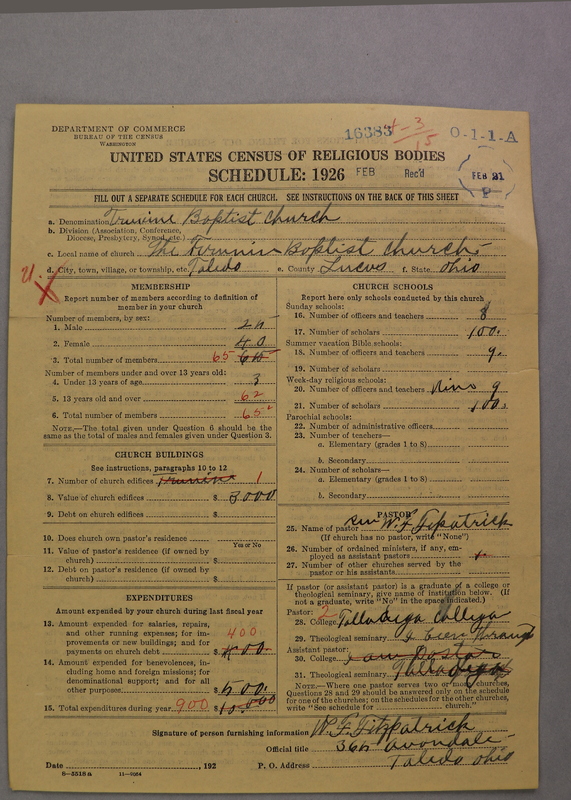 DEPARTMENT OF COMMERCE
BUREAU OF THE CENSUS
WASHINGTON
16383 - 3
15
O-1-1-A
UNITED STATES CENSUS OF RELIGIOUS BODIES
SCHEDULE: 1926 FEB Rec'd
FEB 21
P
FILL OUT A SEPARATE SCHEDULE FOR EACH CHURCH. SEE INSTRUCTIONS ON THE BACK OF THIS SHEET
a. Denomination Baptist Church
b. Division (Association, Conference,
Diocese, Presbytery, Synod, etc.)
c. Local name of church The Baptist Church
d. City, town, village, or township, etc. Toledo e. County Lucus f. State Ohio
MEMBERSHIP
Report number of members according to definition of
member in your church
Number of members, by sex:
1. Male
2. Female 40
3. Total number of members 65
Number of members under and over 13 years old:
4. Under 13 years of age 3
5. 13 years old and over 62
6. Total number of members 65
NOTE.—The total given under Question 6 should be the
same as the total of males and females given under Question 3.
CHURCH BUILDINGS
See instructions, paragraphs 10 to 12
7. Number of church edifices 1
8. Value of church edifices $ 3000
9. Debt on church edifices $
10. Does church own pastor's residence
Yes or No
11. Value of pastor's residence (if owned by
church) $
12. Debt on pastor's residence (if owned by
church) $
EXPENDITURES
Amount expended by your church during last fiscal year
13. Amount expended for salaries, repairs,
and other running expenses; for im-
provements or new buildings; and for
payments on church debt $ 400
14. Amount expended for benevolences, in-
cluding home and foreign missions; for
denominational support; and for all
other purposes $ 500.
15. Total expenditures during year 900 $
CHURCH SCHOOLS
Report here only schools conducted by this church
Sunday schools:
16. Number of officers and teachers 8
17. Number of scholars 100.
Summer vacation Bible schools:
18. Number of officers and teachers 9.
19. Number of scholars
Week-day religious schools:
20. Number of officers and teachers Nine 9
21. Number of scholars 100.
Parochial schools:
22. Number of administrative officers
23. Number of teachers—
a. Elementary (grades 1 to 8)
b. Secondary
24. Number of scholars—
a. Elementary (grades 1 to 8)
b. Secondary
PASTOR
25. Name of pastor Rev W. F. Fitzpatrick
(If church has no pastor, write "None")
26. Number of ordained ministers, if any, em-
ployed as assistant pastors
27. Number of other churches served by the
pastor or his assistants
If pastor (or assistant pastor) is a graduate of a college or
theological seminary, give name of institution below. (If
not a graduate, write "No" in the space indicated.)
Pastor: 2
28. College Talladega College
29. Theological seminary
Assistant pastor:
30. College
31. Theological seminary
NOTE.—Where one pastor serves two or more churches,
Questions 28 and 29 should be answered only on the schedule
for one of the churches; on the schedules for the other churches,
write "See schedule for church."
Signature of person furnishing information W. F. Fitzpatrick
Official title Avondale
Date , 192 P. O. Address Toledo Ohio
8-5518a 11-9064